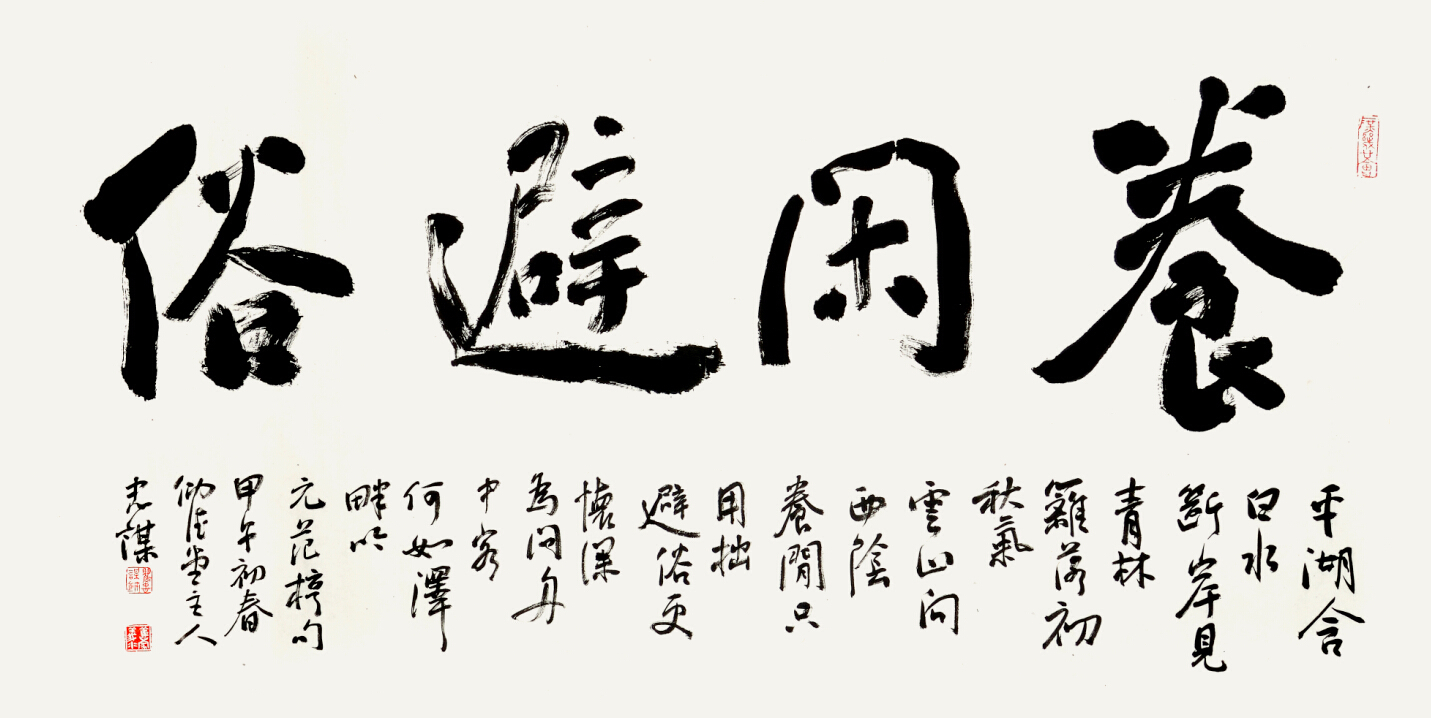 養閑避俗
平湖含
白水
斷岸見
青林
籬落初
秋氣
雲山向
西陰
養閒只
用拙
避俗更
懷深
為問舟
中客
何如澤
畔吟
元范梈句
甲午初春
堂主人
忠謀